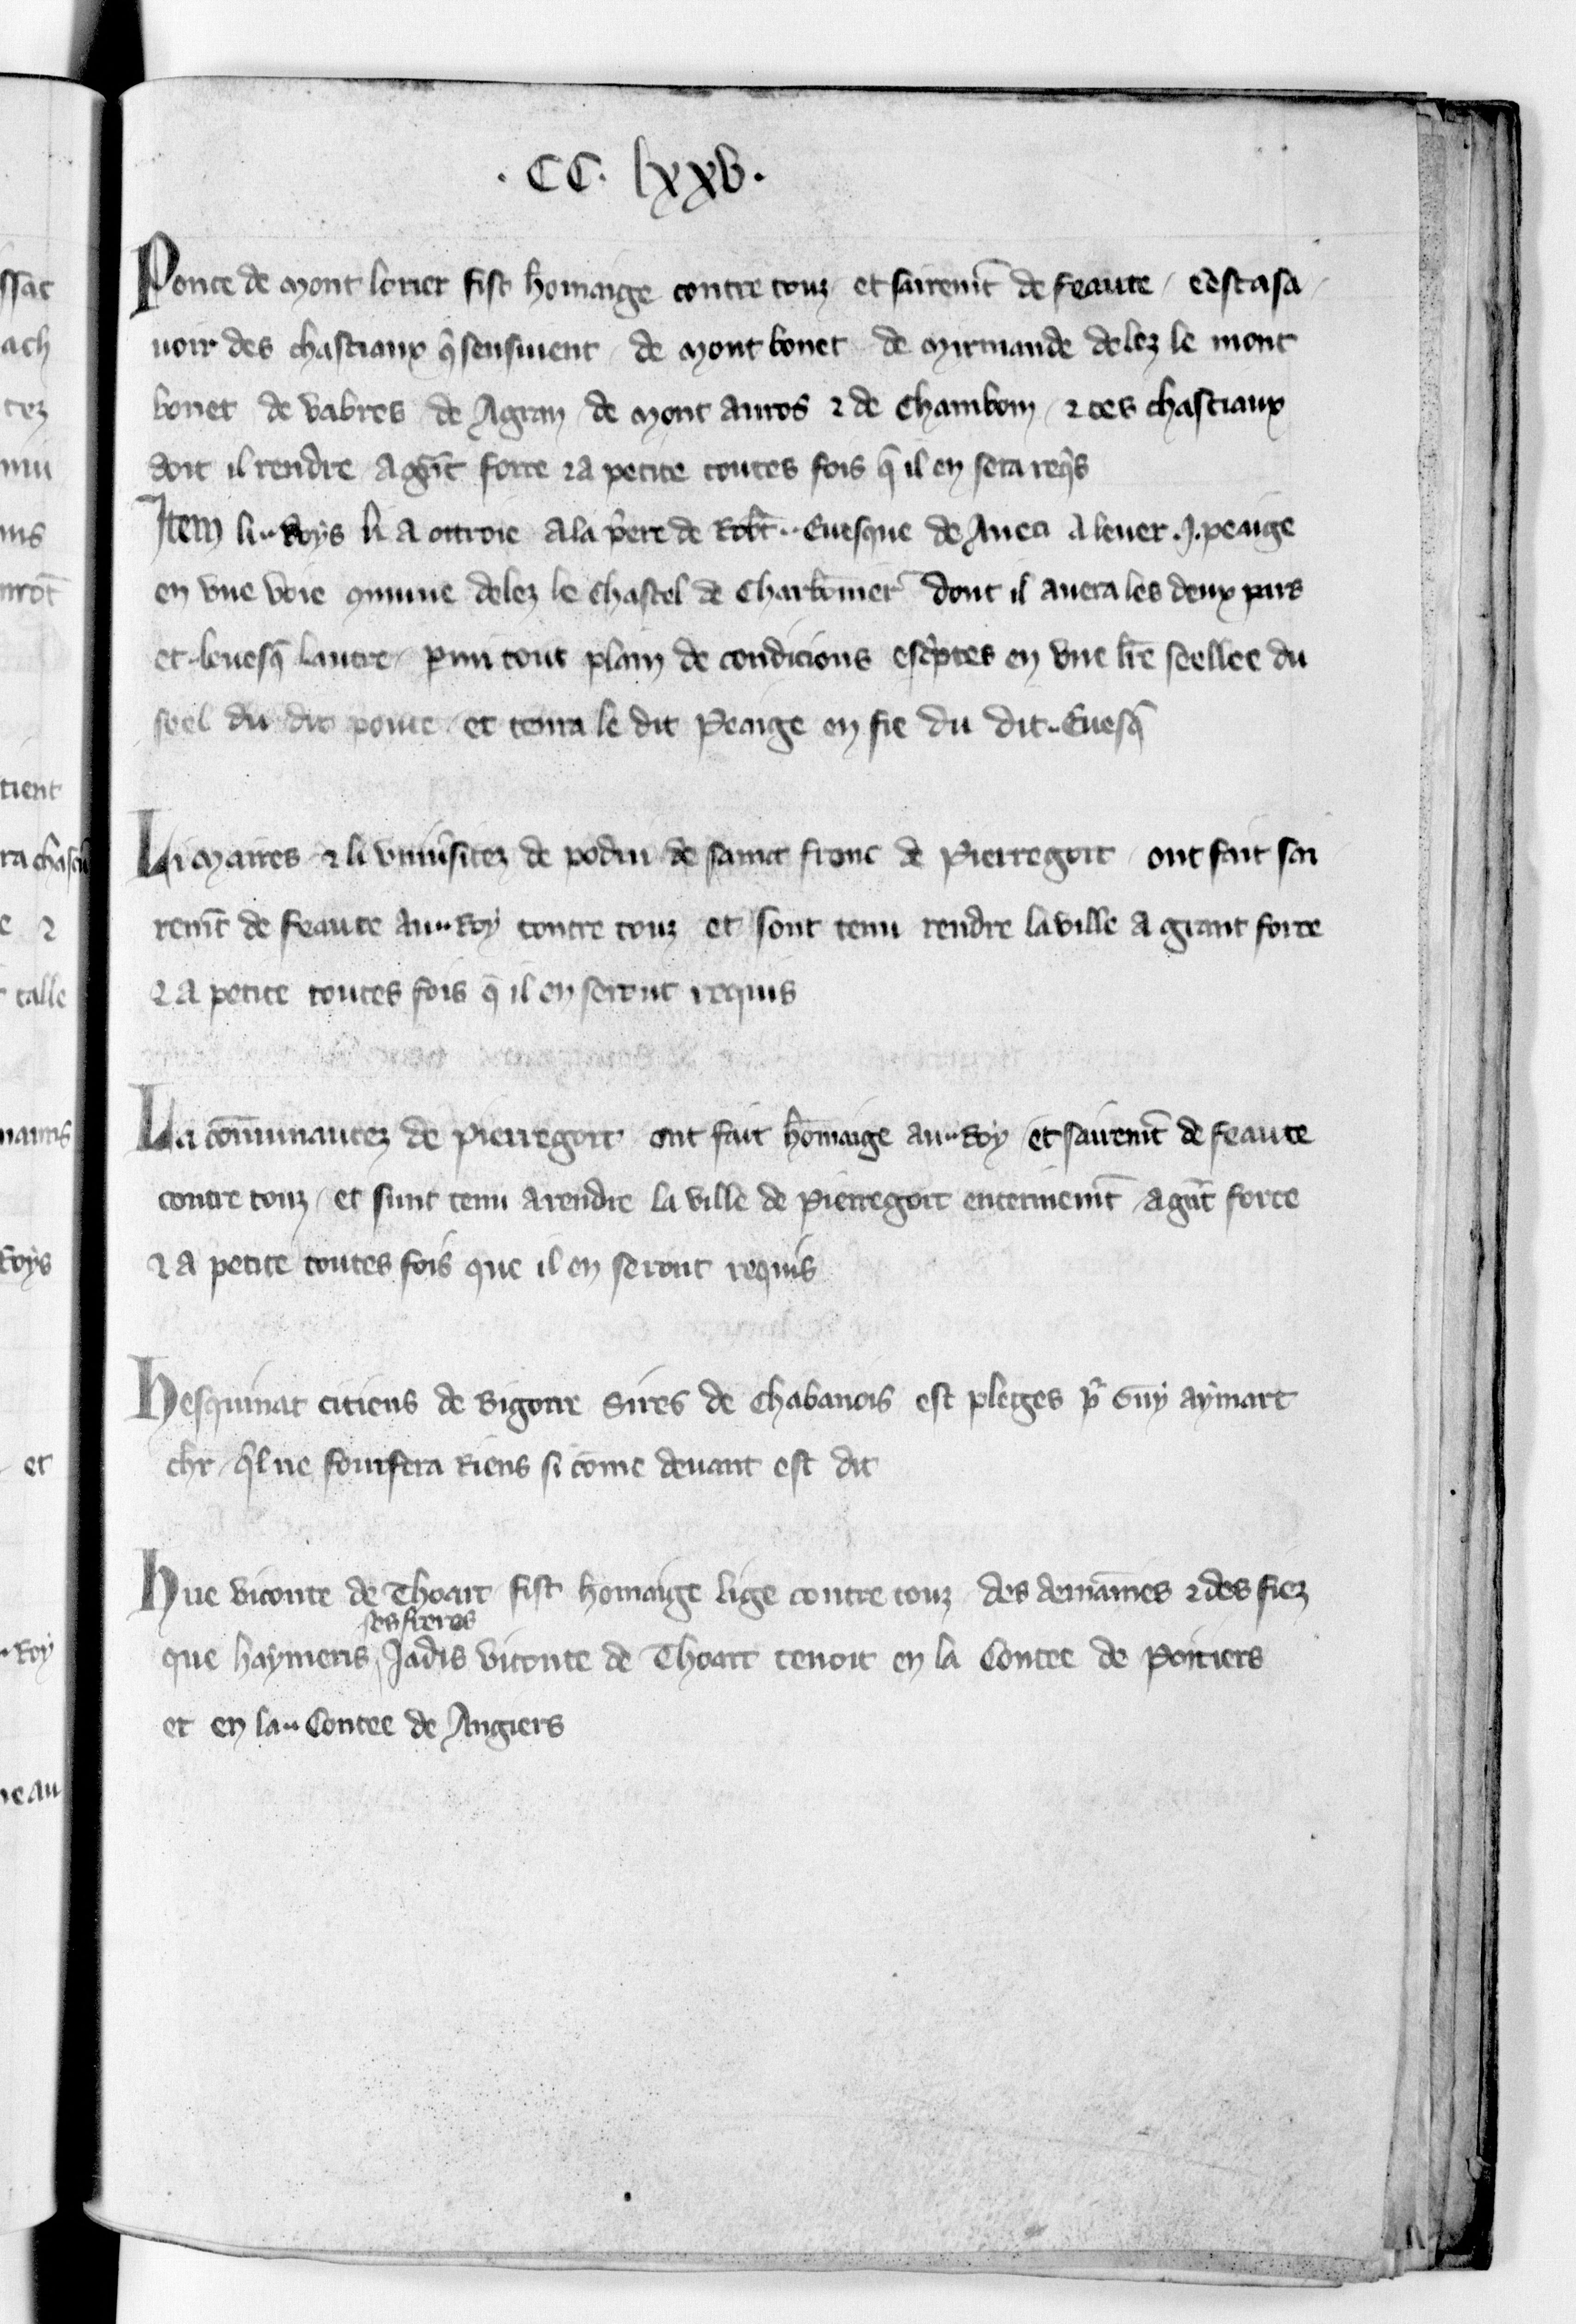 . CC. lxxv.
Ponce de Mont lorier fist homaige contre touz et sairemt̄ de feaute / cest asa
uoir des chastiaux q̄ sensiuent de Mont bonet de Mirmande delez le mont
bonet de vabres de Agran de Mont auros ⁊ de Chambon / ⁊ ces chastiaux
doit il rendre a gr̄t force ⁊ a petite toutes fois q̄ il en sera req̄s
Item li .. Roys li a ottroie a la p̄ere de Rob̄t .. Euesque de Aueci a leuer .J. peaige
en vne voie 9mune delez le Chastel de Charbonnier dont il auera les deux pars
et leuesq̄ lautre / p̄mi tout plain de condicions esc̄ptes en vne lr̄e seellee du
seel du dit ponce / et tenra le dit Peaige en fie du dit .. Euesq̄
Li Maires ⁊ li vniu̓sitez de podiu de saint fronc de Pierregort ont fait sai
remt̄ de feaute au .. Roy contre touz et sont tenu rendre la ville a grant force
⁊ a petite toutes fois q̄ il en seront requis
La com̄munautez de pierregort ont fait hōmaige au .. Roy et sairemt̄ de feaute
contre touz / et sunt tenu a rendre la ville de pierregort enterinemt̄ / a gr̄t force
⁊ a petite toutes fois que il en seront requis
hesquinat citiens de Bigorre Sires de Chabanois est pleiges p̄ Guy aymart
chr̄ / q̄l ne fourfera Riens si cōme deuant est dit
hue viconte de Thoart fist homaige lige contre touz des demain̄nes ⁊ des fiez
ses freres
que haymeris Jadis viconte de Thoart tenoit en la Contee de Poitiers
et en la .. Contee de Angiers